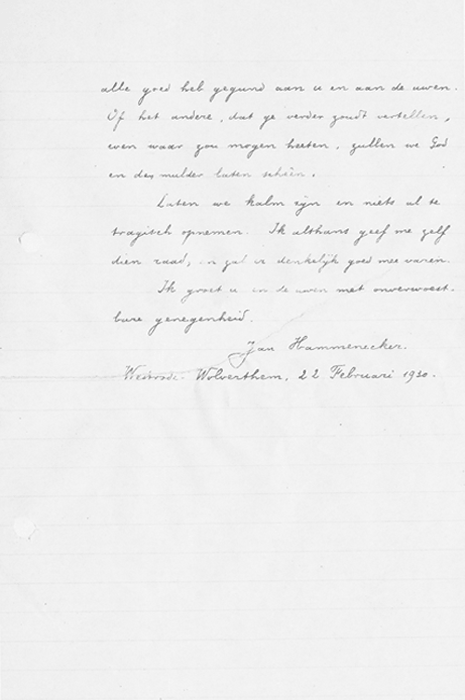 alle goed heb gegund aan u en aan de uwen.
Of het andere, dat ge verder zoudt vertellen,
even waar zou mogen heeten, zullen we God
en den mulder laten scheên.
Laten we kalm zijn en niets al te
tragisch opnemen. Ik althans geef me zelf
dien raad, en zal er denkelijk goed mee varen.
Ik groet u en de uwen met onverwoest-
bare genegenheid.
Jan Hammenecker.
Wolverthem, 22 Februari 1930.